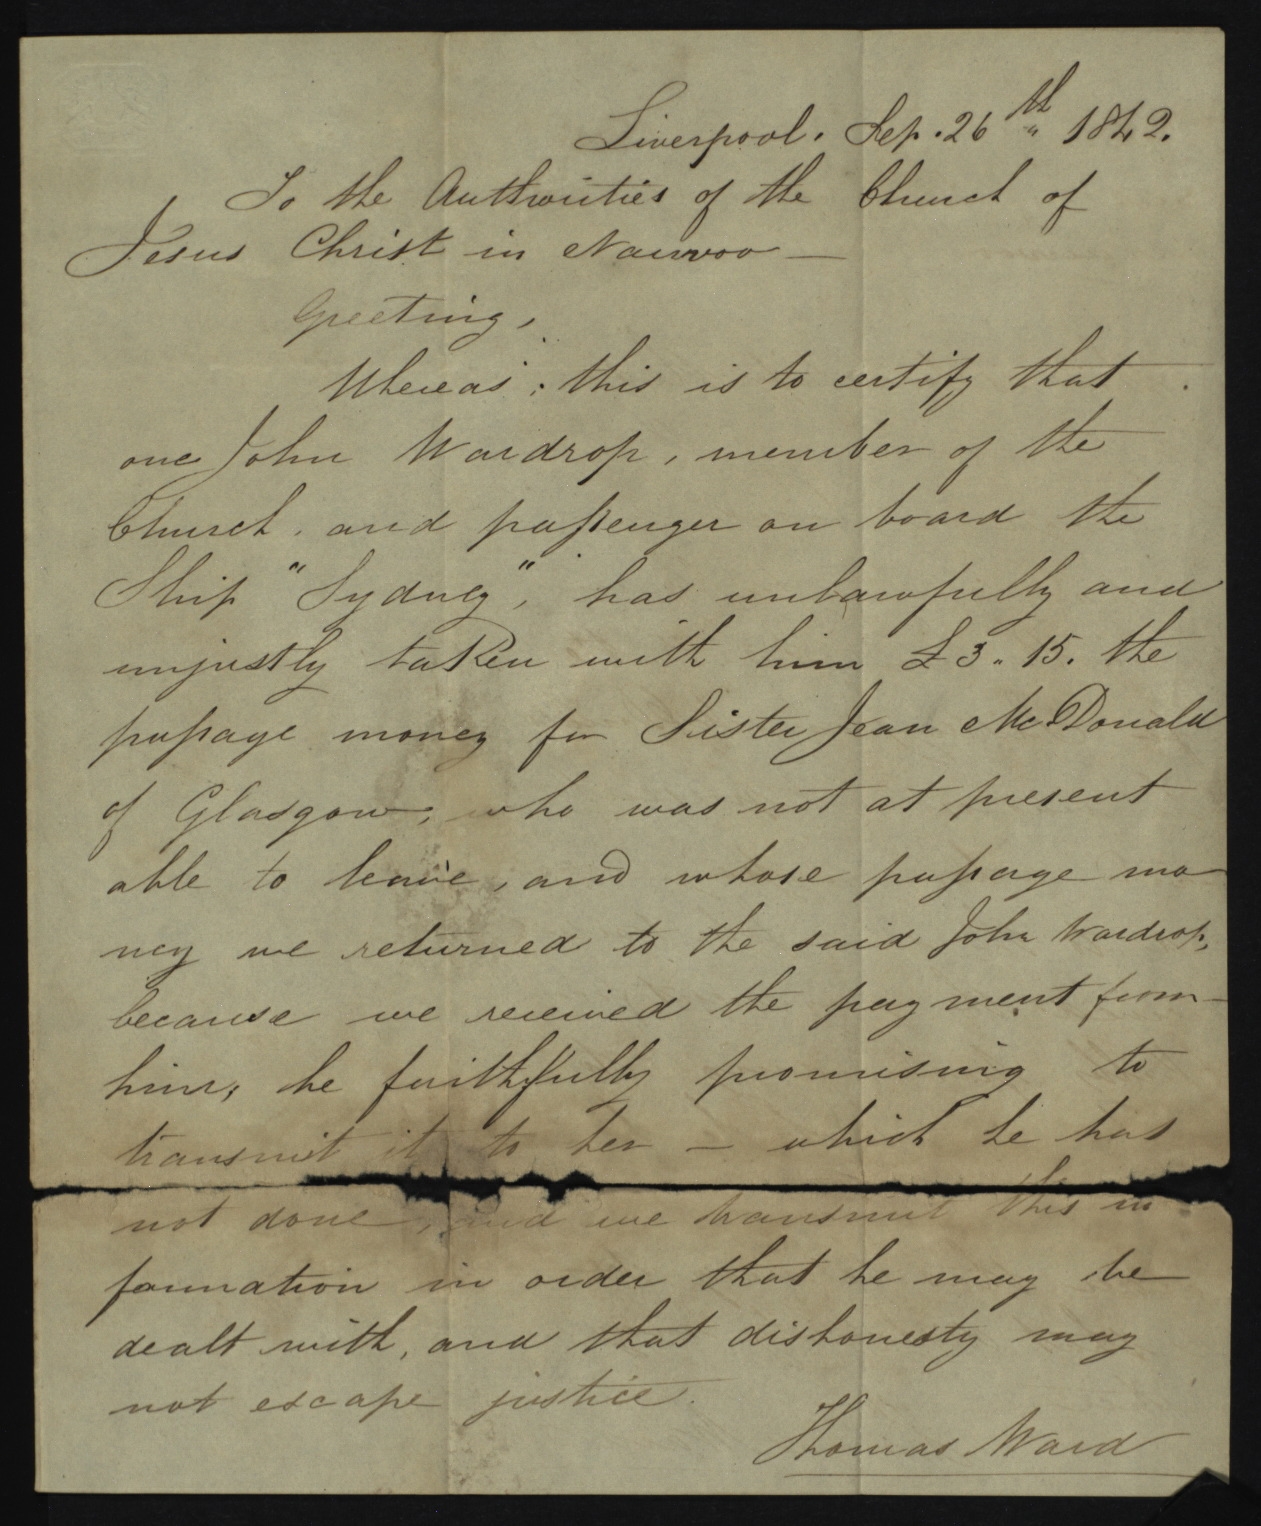 Liverpool. Sep. 26th 1842.
To the Authorities of the Church of
Jesus Christ in Nauvoo —
Greeting,
Whereas; this is to certify that
one John Wardrop, member of the
Church, and passenger on board the
Ship "Sydney", has unlawfully and
unjustly taken with him £3.. 15. the
passage money for Sister Jean McDonald
of Glasgow, who was not at present
able to leave, and whose passage mo
ney we returned to the said John Wardrop,
because we received the payment from
him, he faithfully promising to
transmit it to her — which he has
not done, and we transmit this in
formation in order that he may be
dealt with, and that dishonesty may
not escape justice.
Thomas Ward